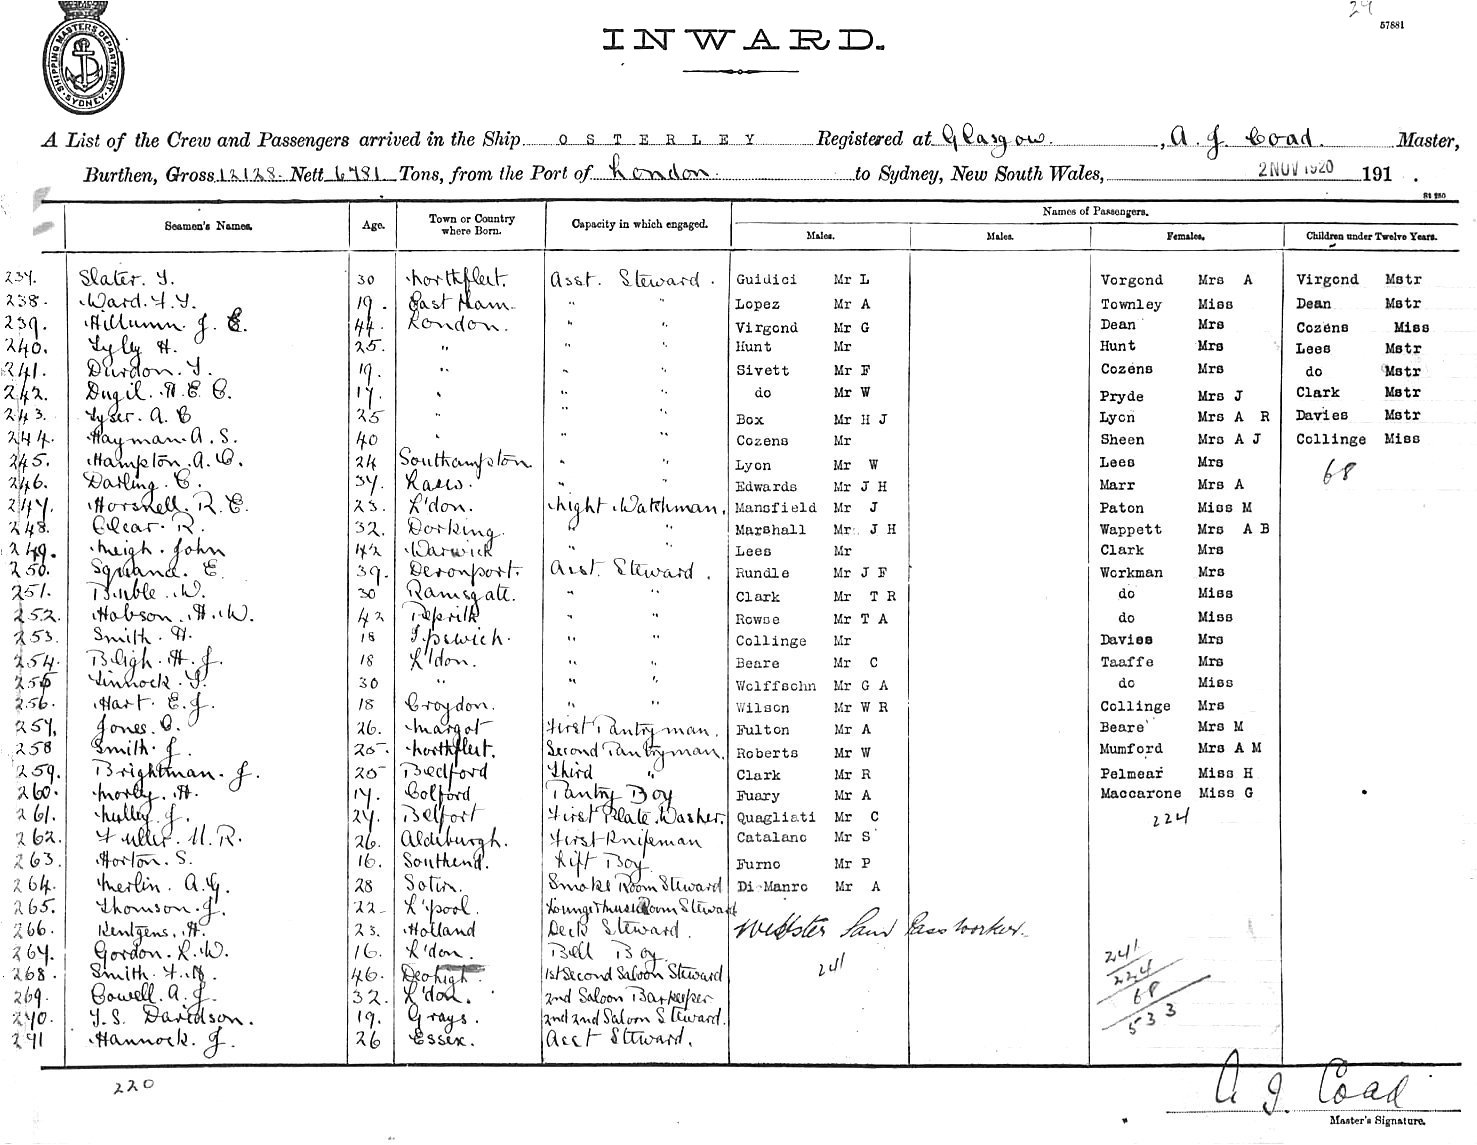 29
57881
SHIPPING MASTERS DEPARTMENT SYDNEY
INWARD.
A List of the Crew and Passengers arrived in the Ship OSTERLEY Registered at Glasgow. , A. J. Coad. Master,
Burthen, Gross 12128. Nett 6781 Tons, from the Port of London. to Sydney, New South Wales, 2 NOV 1920 191 .
Names of Passengers.
Seamen's Names. Age. Town or Country where Born. Capacity in which engaged. Males. Males. Females. Children under Twelve Years.
237. Slater. T. 30 Northfleet. Asst. Steward. Guidici Mr L Vorgond Mrs A Virgond Mstr
238. Ward. F. T. 19. East Ham. " " Lopez Mr A Townley Miss Dean Mstr
239. J. E. 44. London. " " Virgond Mr G Dean Mrs Cozens Miss
240. Lyly H. 25. " " " Hunt Mr Hunt Mrs Lees Mstr
241. Durdon. T. 19. " " " Sivett Mr F Cozens Mrs do Mstr
242. Dugil. H. E. C. 17. " " " do Mr W Pryde Mrs J Clark Mstr
243. Lyser. A. C 25 " " " Box Mr H J Lyon Mrs A R Davies Mstr
244. Hayman. A. S. 40 " " " Cozens Mr Sheen Mrs A J Collinge Miss
245. Hampton. A. C. 24 Southampton " " Lyon Mr W Lees Mrs 68
246. Darling. C. 37. " " Edwards Mr J H Marr Mrs A
247. Horsnell. R. E. 23. L'don. Night Watchman. Mansfield Mr J Paton Miss M
248. Clear. R. 32. Dorking. " " Marshall Mr J H Wappett Mrs A B
249. Meigh. John 42 Warwick " " Lees Mr Clark Mrs
250. Squance. E. 39. Devonport. Asst. Steward. Rundle Mr J F Workman Mrs
251. W. 30 Ramsgate. " " Clark Mr T R do Miss
252. Hobson. H. W. 42 " " Rowse Mr T A do Miss
253. Smith. H. 18 Ipswich. " " Collinge Mr Davies Mrs
254. Bligh. H. J. 18 L'don. " " Beare Mr C Taaffe Mrs
255 Tinnock. T. 30 " " " Wolffsohn Mr G A do Miss
256. Hart. E. J. 18 Croydon. " " Wilson Mr W R Collinge Mrs
257. Jones. C. 26. Margot First Pantryman. Fulton Mr A Beare Mrs M
258 Smith. J. 25. Northfleet. Second Pantryman. Roberts Mr W Mumford Mrs A M
259. Brightman. J. 25 Bedford Third " Clark Mr R Pelmear Miss H
260. Morley. H. 17. Colford Pantry Boy Fuary Mr A Maccarone Miss G
261. J. 27. Belfort First Plate Washer. Quagliati Mr C 224
262. Fuller. U. R. 26. Aldeburgh. First Knifeman Catalano Mr S
263. Horton. S. 16. Southend. Lift Boy Furno Mr P
264. Merlin. A. G. 28 Smoke Room Steward Di Manro Mr A
265. Thomson. J. 22 L'pool. Lounge & Music Room Steward
266. Rentgens. H. 23. Holland Deck Steward. Webster Pass Worker.
267. Gordon. L. W. 16. L'don. Bell Boy 241
268. Smith. F. N. 46. 1st Second Saloon Steward
269. Cowell. A. J. 32. L'don. 2nd Saloon Barkeeper
270. T. S. Davidson. 19. Grays. 2nd 2nd Saloon Steward.
271 Hannock. J. 26 Essex. Asst Steward.
241
224
68
533
220
A J Coad
Master's Signature.